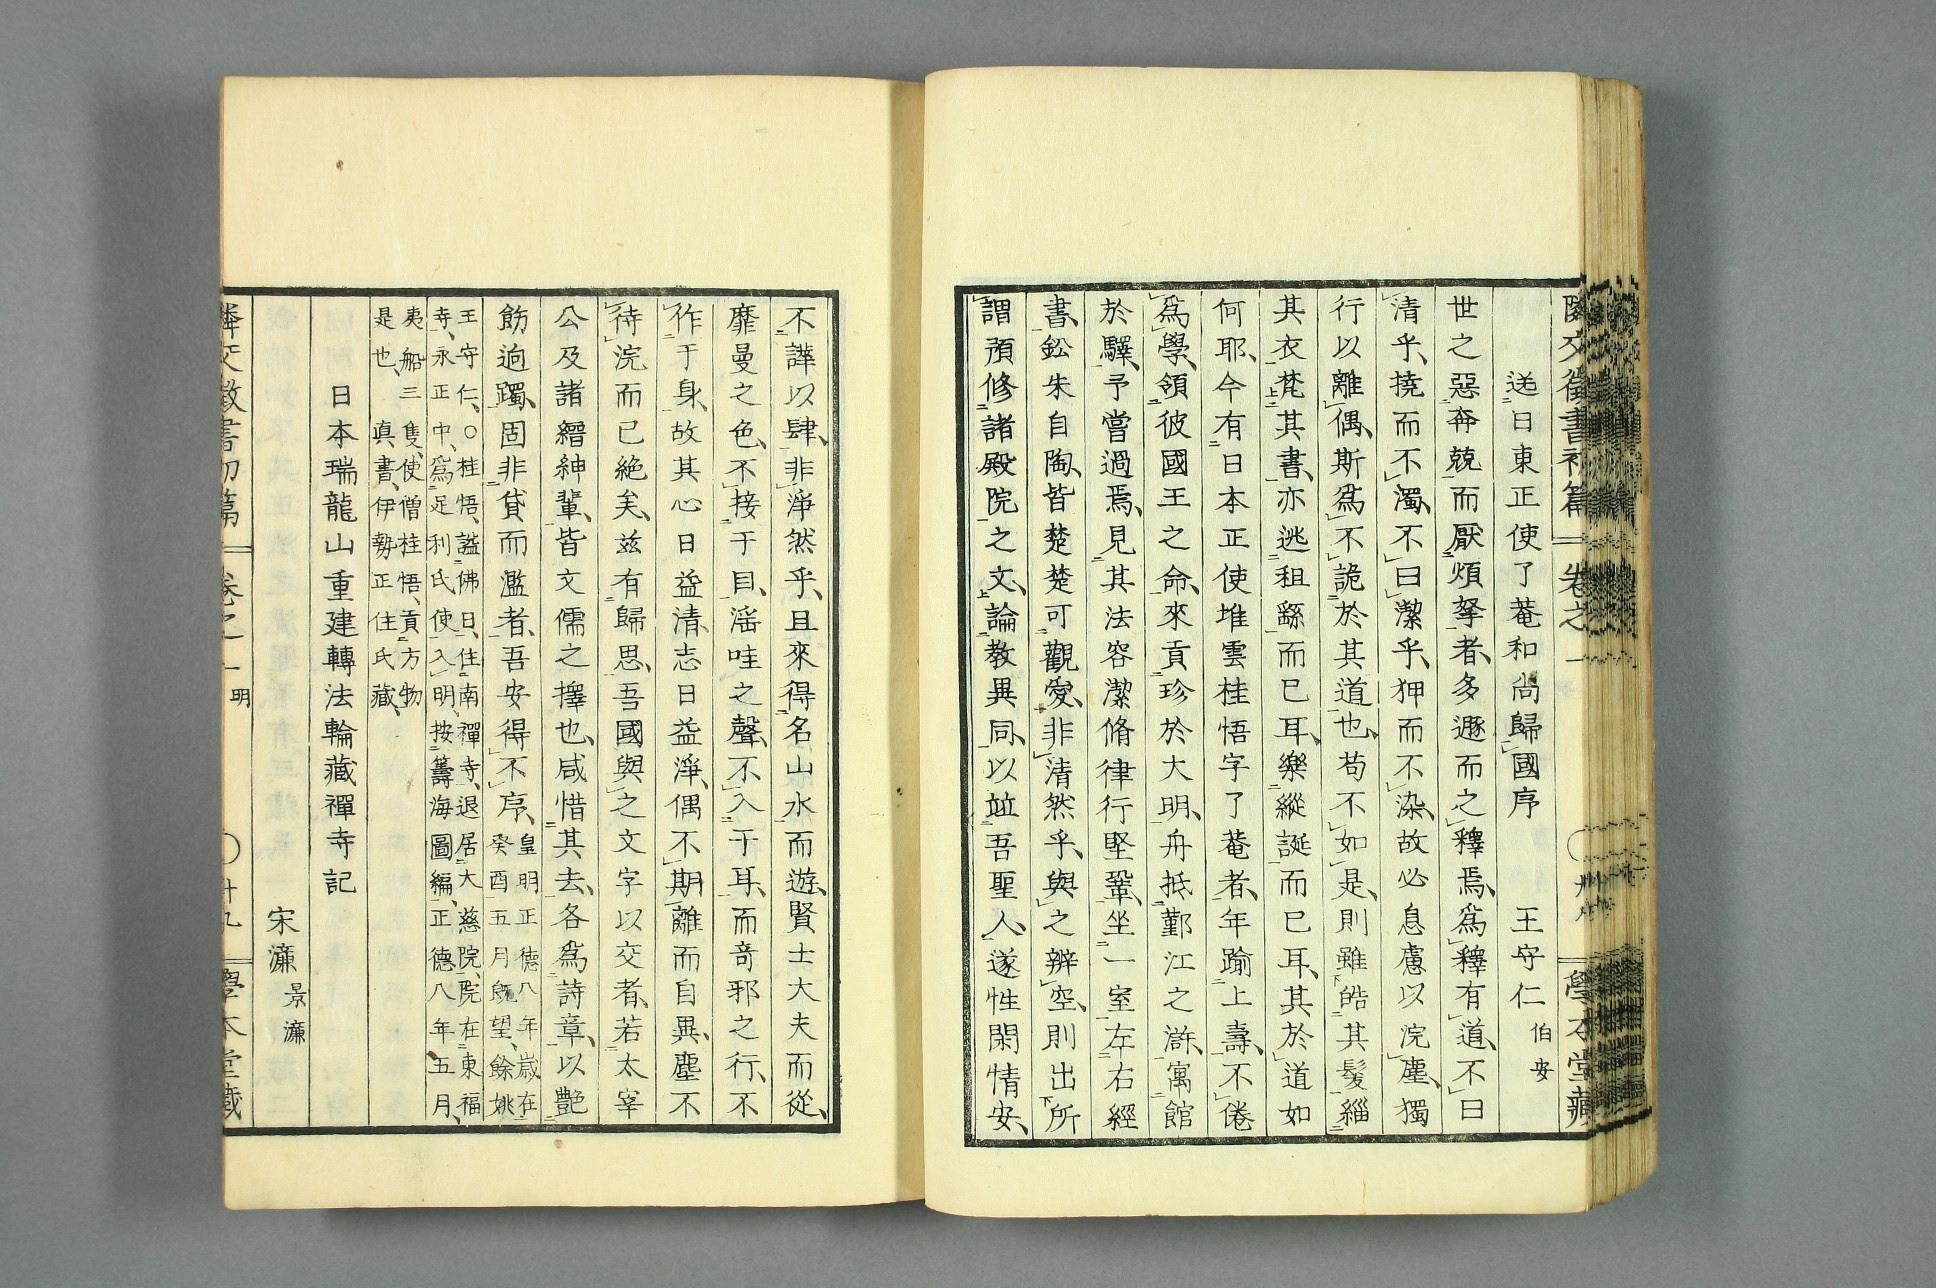 隣交徵書初篇 卷之一 學本堂藏
送日東正使了菴和尚歸國序 王守仁 伯安
世之惡奔競而厭煩拏者、多遯而之釋焉、爲釋有道、不曰
清乎、撓而不濁、不曰潔乎、狎而不染、故必息慮以浣塵、獨
行以離偶、斯爲不詭於其道也、苟不如是、則雖皓其髮緇
其衣梵其書、亦逃租繇而已耳、樂縱誕而已耳、其於道如
何耶、今有日本正使堆雲桂悟字了菴者、年踰上壽、不倦
爲學、領彼國王之命、來貢珍於大明、舟抵鄞江之滸、寓館
於驛、予嘗過焉、見其法容潔脩律行堅鞏、坐一室左右經
書、鉛朱自陶、皆楚楚可觀愛、非清然乎、與之辨空、則出所
謂預修諸殿院之文、論教異同、以竝吾聖人、遂性閑情安、
不譁以肆、非淨然乎、且來得名山水而遊、賢士大夫而從、
靡曼之色、不接于目、淫哇之聲、不入于耳、而奇邪之行、不
作于身、故其心日益清、志日益淨、偶不期離而自異、塵不
待浣而已絶矣、兹有歸思、吾國與之文字以交者、若太宰
公及諸縉紳輩、皆文儒之擇也、咸惜其去、各爲詩章、以艷
飭逈躅、固非貸而濫者、吾安得不序、皇明正德八年歲在
癸酉五月旣望、餘姚
王守仁、○桂悟、謚佛日、住南禪寺、退居大慈院、院在東福
寺、永正中、爲足利氏使入明、按籌海圖編、正德八年五月、
夷船三隻、使僧桂悟、貢方物
是也、眞書、伊勢正住氏藏、
日本瑞龍山重建轉法輪藏禪寺記
宋濂 景濂
隣交徵書初篇 卷之一 明 ○ 十九 學本堂藏